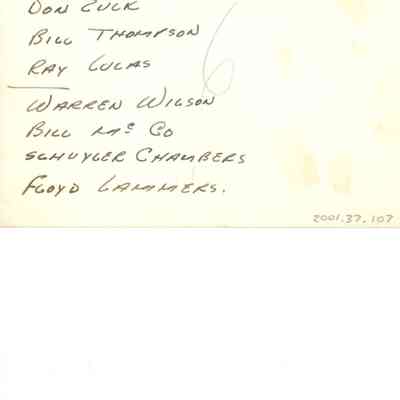 DON CULK
BILL THOMPSON
RAY LUCAS
WARREN WILSON
BILL McCO
SCHUYLER CHAMBERS
FLOYD LAMMERS.
2001.37.107